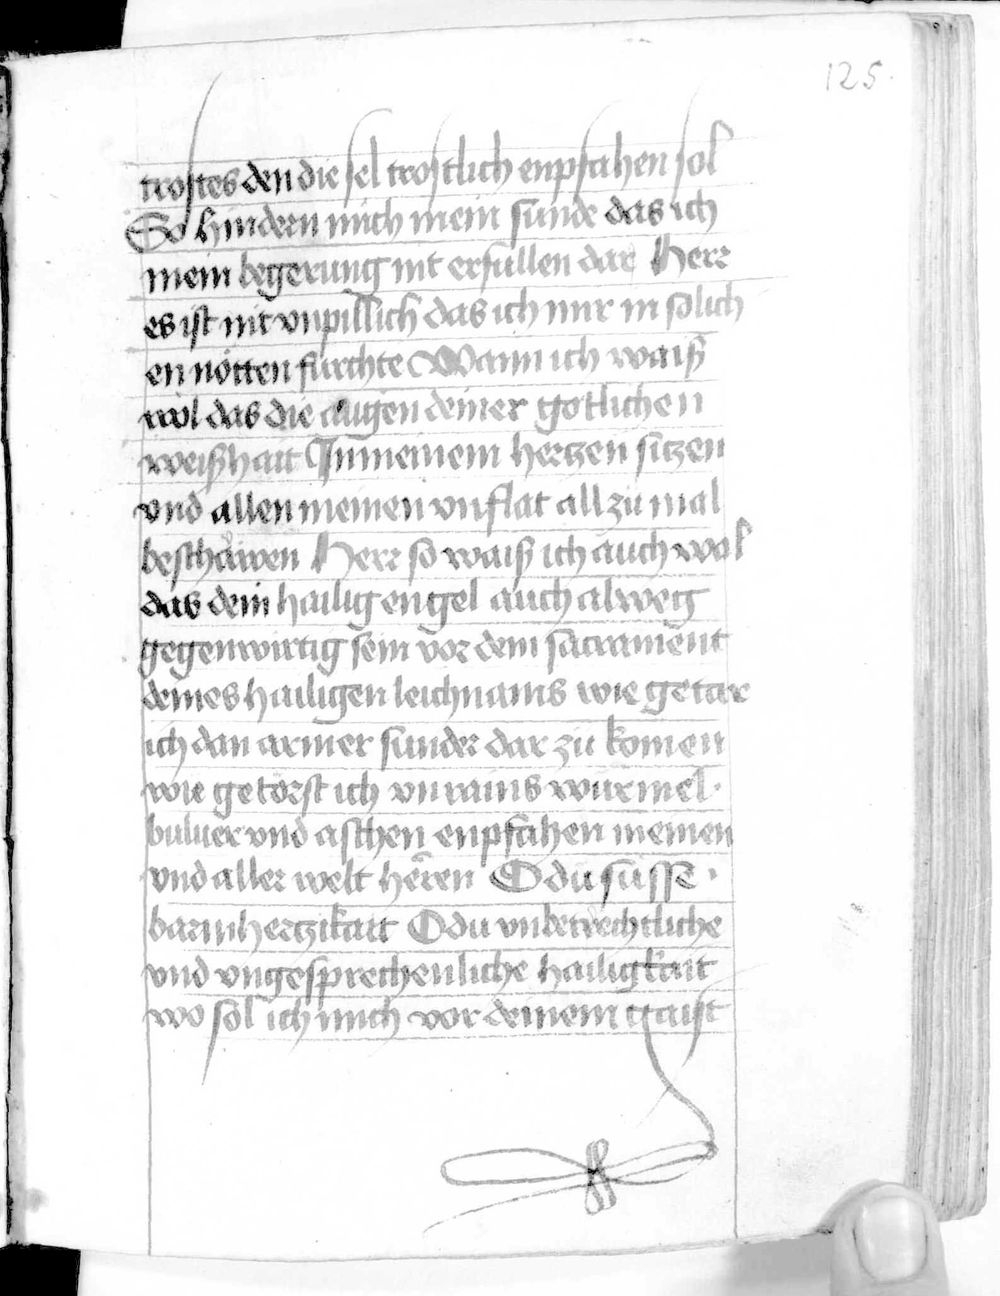 125.
trostes den die sel trostlich enpfahen sol
So hindern mich mein sunde das ich
mein begerung nit erfullen dar Herr
es ist nit vnpillich das ich mir in solich
en nötten furchte Wann ich waiß
wol das die augen deiner gotlichen
weißhait In meinem hertzen sitzen
vnd allen meinen vnflat all zu mal
beschäwen Herr so waiß ich auch wol
das dein hailig engel auch alweg
gegenwirtig sein vor dem sacrament
deines hailigen leichnams wie getar
ich dan armer sunder dar zu komen
wie getörst ich vnrains würmel.
buluer vnd aschen enpfahen meinen
vnd aller welt herren O du susse.
barmhertzikait O du vnbetrechtliche
vnd vngesprechenliche hailigkait
wo sol ich mich vor deinem gaist